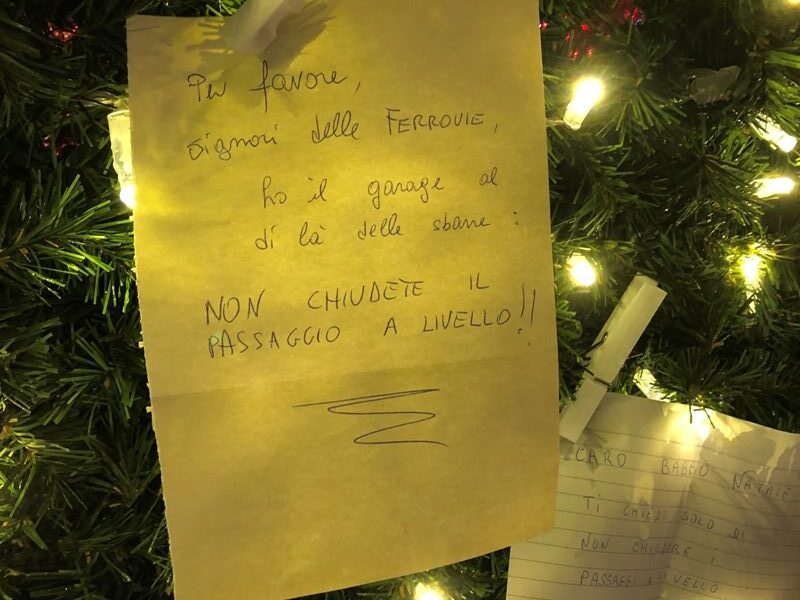 Per favore,
signori delle FERROVIE,
ho il garage al
di là delle sbarre:
NON CHIUDETE IL
PASSAGGIO A LIVELLO!!
CARO BABBO NATALE
TI CHIEDO SOLO DI
NON CHIUDERE i
PASSAGGI A LIVELLO